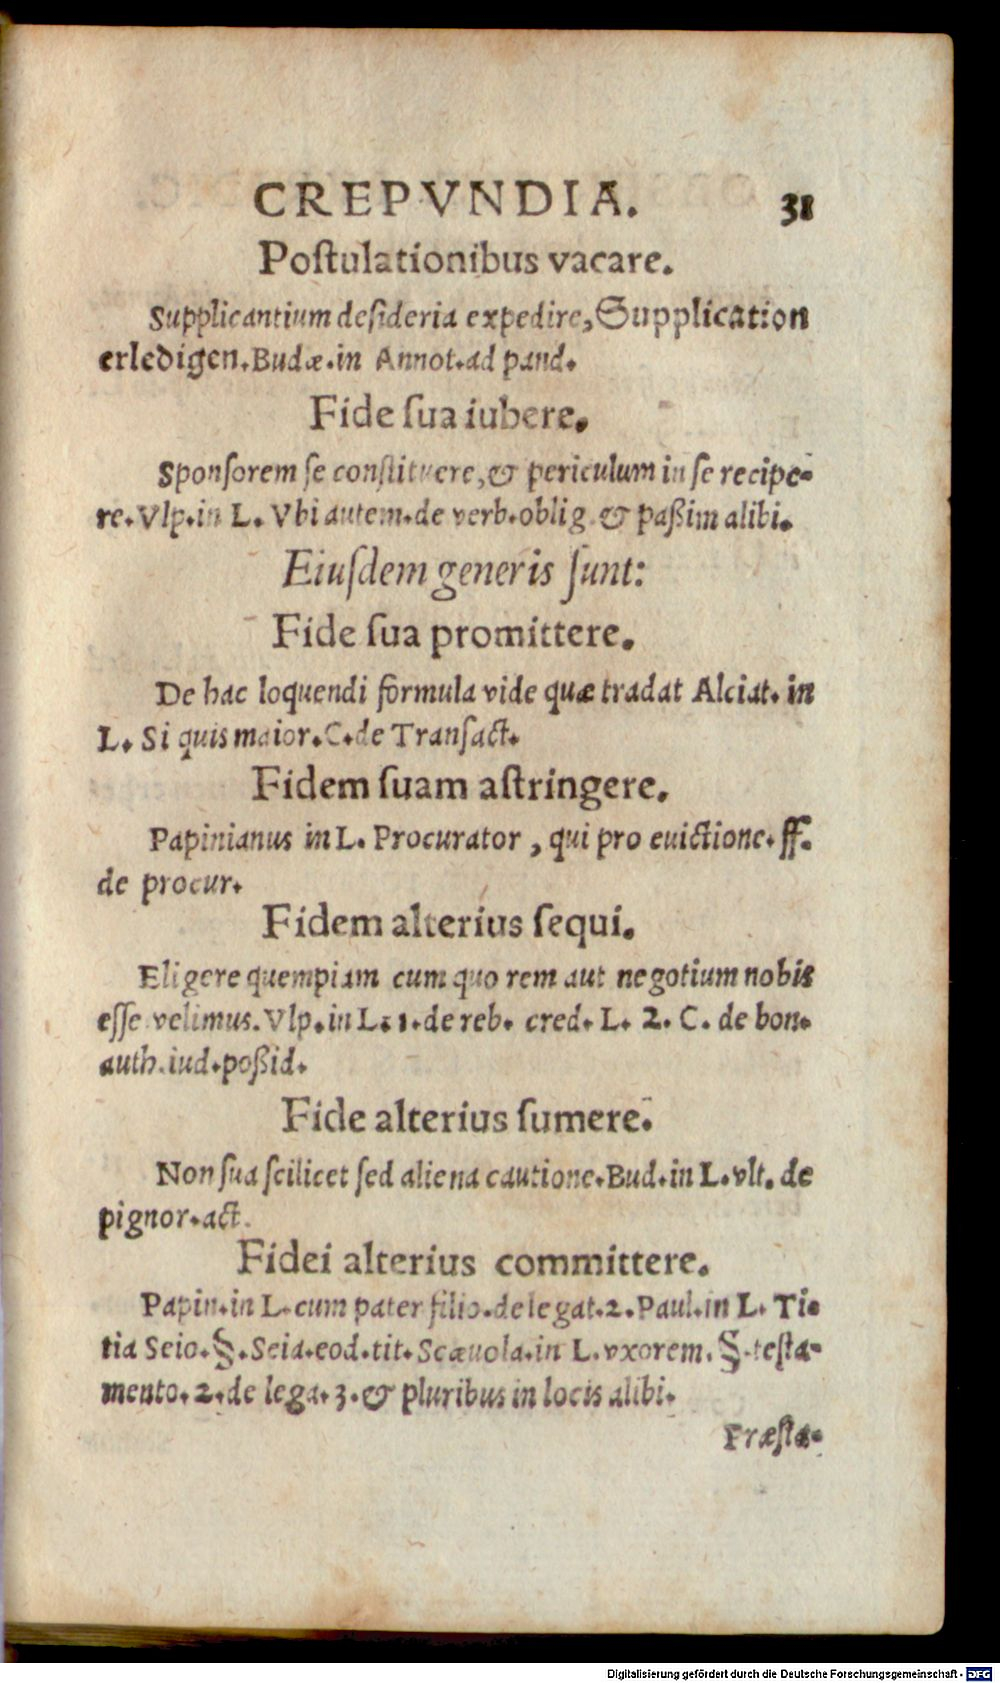 CREPVNDIA. 31
Poſtulationibus vacare.
Supplicantium deſideria expedire, Supplication
erledigen. Budæ. in Annot. ad pand.
Fide ſua iubere.
Sponſorem ſe conſtituere, & periculum in ſe recipe-
re. Vlp. in L. Vbi autem. de verb. oblig. & paßim alibi.
Eiuſdem generis ſunt:
Fide ſua promittere.
De hac loquendi formula vide quæ tradat Alciat. in
L. Si quis maior. C. de Tranſact.
Fidem ſuam aſtringere.
Papinianus in L. Procurator, qui pro euictione. ff.
de procur.
Fidem alterius ſequi.
Eligere quempiam cum quo rem aut negotium nobis
eſſe velimus. Vlp. in L. 1. de reb. cred. L. 2. C. de bon.
auth. iud. poßid.
Fide alterius ſumere.
Non ſua ſcilicet ſed aliena cautione. Bud. in L. vlt. de
pignor. act.
Fidei alterius committere.
Papin. in L. cum pater filio. de legat. 2. Paul. in L. Ti-
tia Seio. §. Seia. eod. tit. Scæuola. in L. vxorem. §. teſta-
mento. 2. de lega. 3. & pluribus in locis alibi.
Præſta-
Digitalisierung gefördert durch die Deutsche Forschungsgemeinschaft - DFG